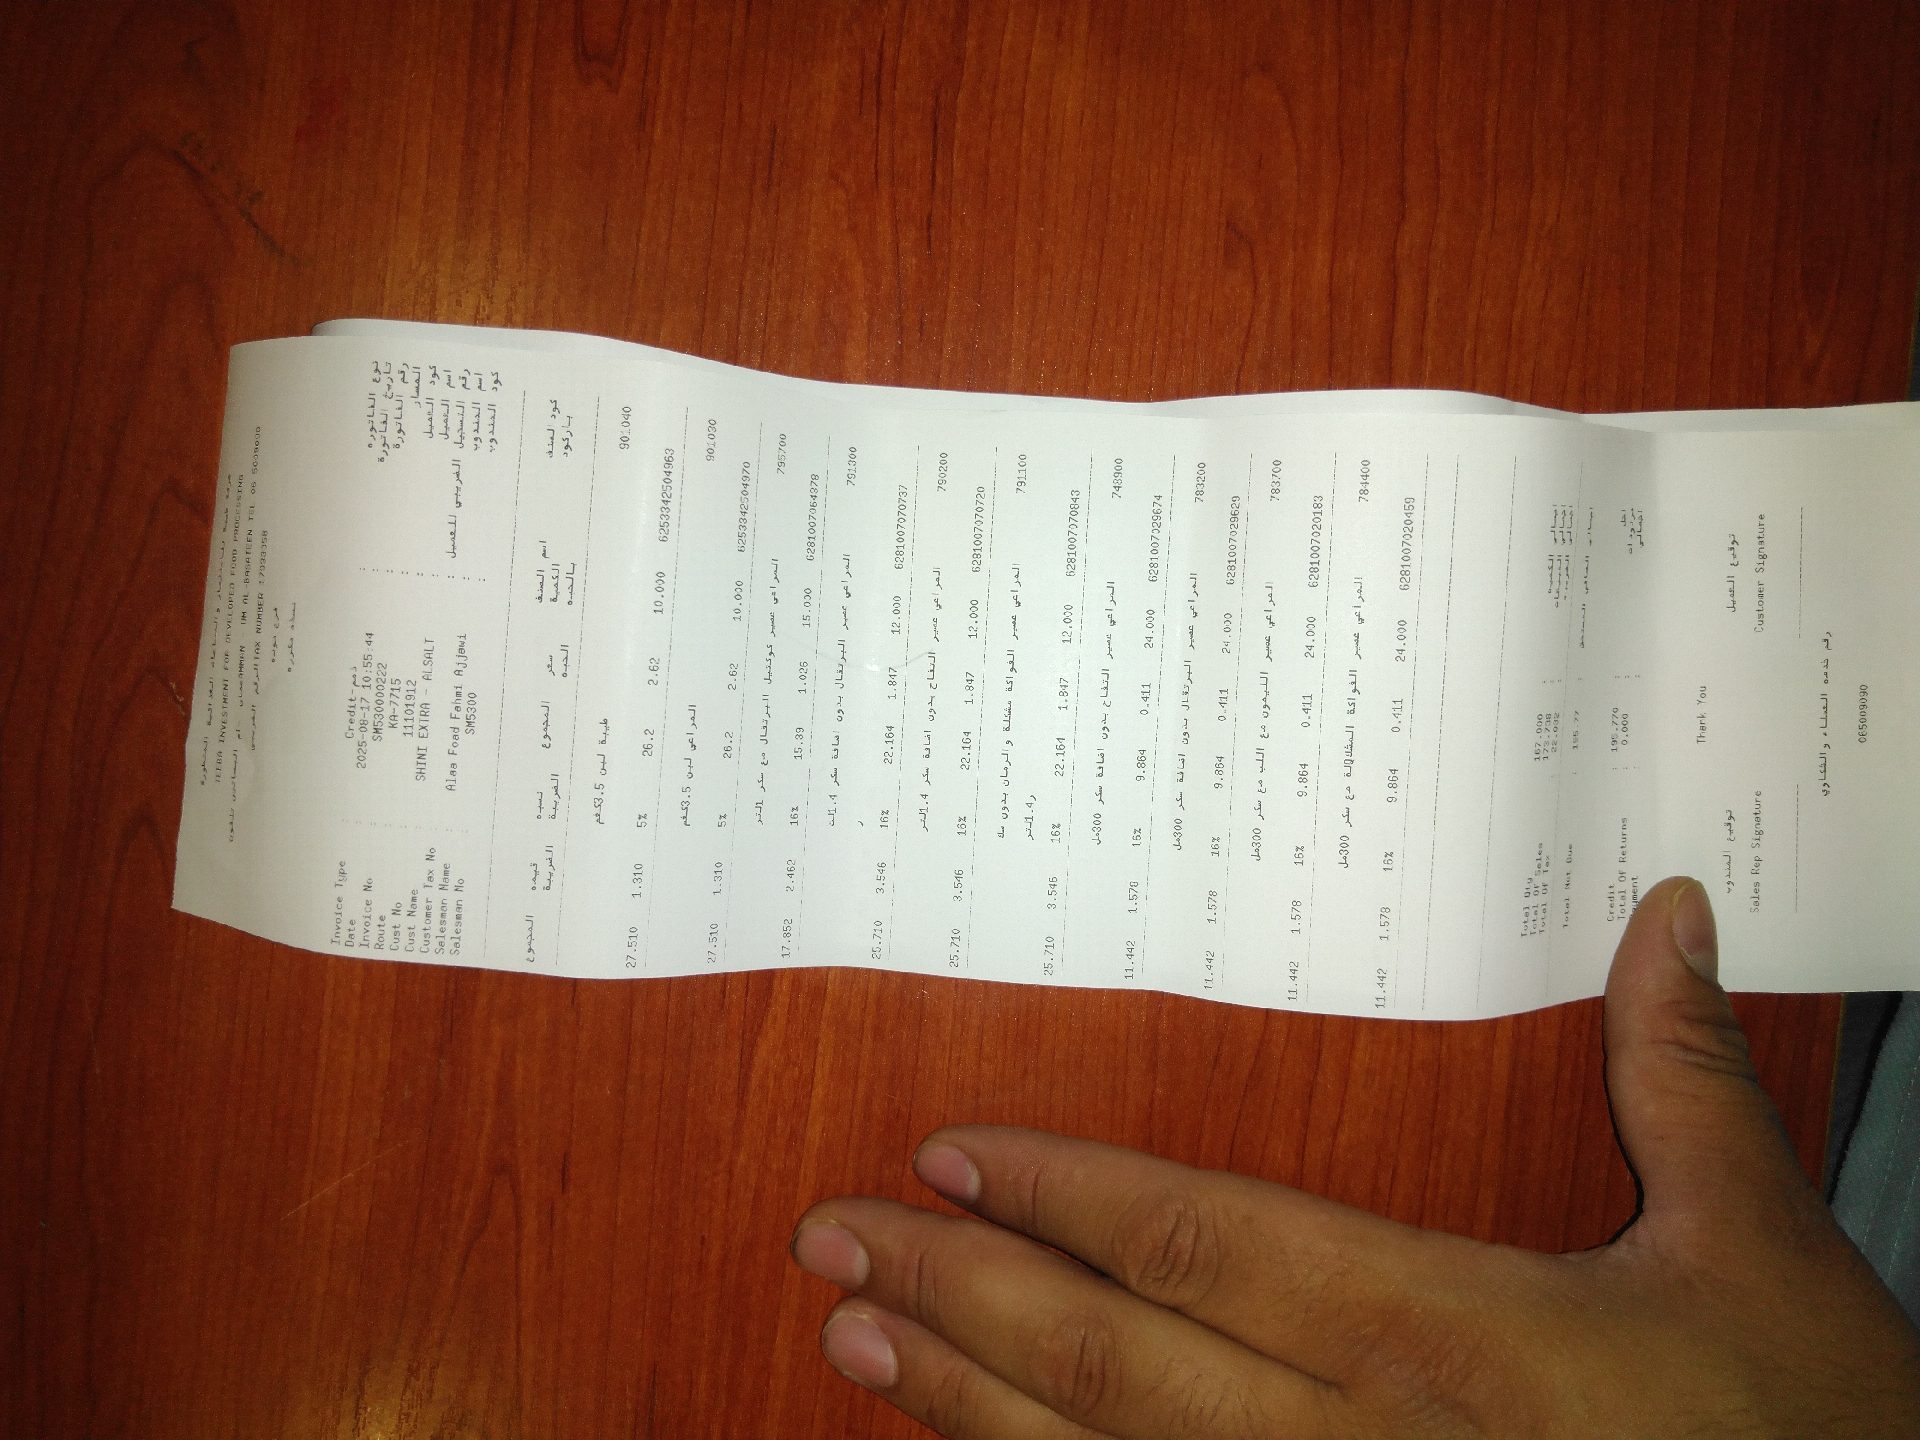 TEEBA INVESTMENT FOR DEVELOPED FOOD PROCESSING
AMMAN - UM AL-BASATEEN TEL 06 5009090
TAX NUMBER
نسخه مكرره
Invoice Type : Credit-ذمم نوع الفاتوره
Date : 2025-08-17 10:55:44 تاريخ الفاتورة
Invoice No : SM530000222 رقم الفاتورة
Route : KA-7715 المسار
Cust No : 11101912 كود العميل
Cust Name : SHINI EXTRA - ALSALT اسم العميل
Customer Tax No : رقم التسجيل الضريبي للعميل
Salesman Name : Alaa Foad Fahmi Ajjawi اسم المندوب
Salesman No : SM5300 كود المندوب
المجموع قيمه نسبه المجموع سعر اسم الصنف كود الصنف
الضريبة الضريبة الحبه الكمية بالحبه باركود
طيبة لبن 3.5كغم 901040
27.510 1.310 5% 26.2 2.62 10.000 6253342504963
المراعي لبن 3.5كغم 901030
27.510 1.310 5% 26.2 2.62 10.000 6253342504970
المراعي عصير كوكتيل البرتقال مع سكر 1لتر 795700
17.852 2.462 16% 15.39 1.026 15.000 6281007064378
المراعي عصير البرتقال بدون اضافة سكر 1.4لت 791300
ر
25.710 3.546 16% 22.164 1.847 12.000 6281007070737
المراعي عصير التفاح بدون اضافة سكر 1.4لتر 790200
25.710 3.546 16% 22.164 1.847 12.000 6281007070720
المراعي عصير الفواكة مشكلة والرمان بدون سك 791100
ر1.4لتر
25.710 3.546 16% 22.164 1.847 12.000 6281007070843
المراعي عصير التفاح بدون اضافة سكر 300مل 748900
11.442 1.578 16% 9.864 0.411 24.000 6281007029674
المراعي عصير البرتقال بدون اضافة سكر 300مل 783200
11.442 1.578 16% 9.864 0.411 24.000 6281007029629
المراعي عصير الليمون مع اللب مع سكر 300مل 783700
11.442 1.578 16% 9.864 0.411 24.000 6281007020183
المراعي عصير الفواكة المشكلة مع سكر 300مل 784400
11.442 1.578 16% 9.864 0.411 24.000 6281007020459
Total Qty : 167.000
Total Of Sales : 173.738
Total Of Tax : 22.032
Total Net Due : 195.77
Credit : 195.770
Total Of Returns : 0.000
Thank You
توقيع المندوب توقيع العميل
Sales Rep Signature Customer Signature
رقم خدمه العملاء والشكاوي
065009090